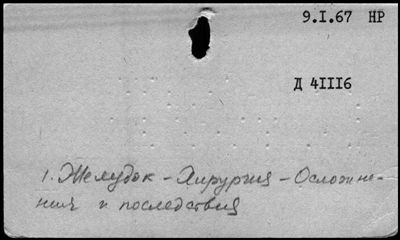 9.I.67 НР
Д 4III6
1. Желудок - Хирургия - Осложне-
ния и последствия